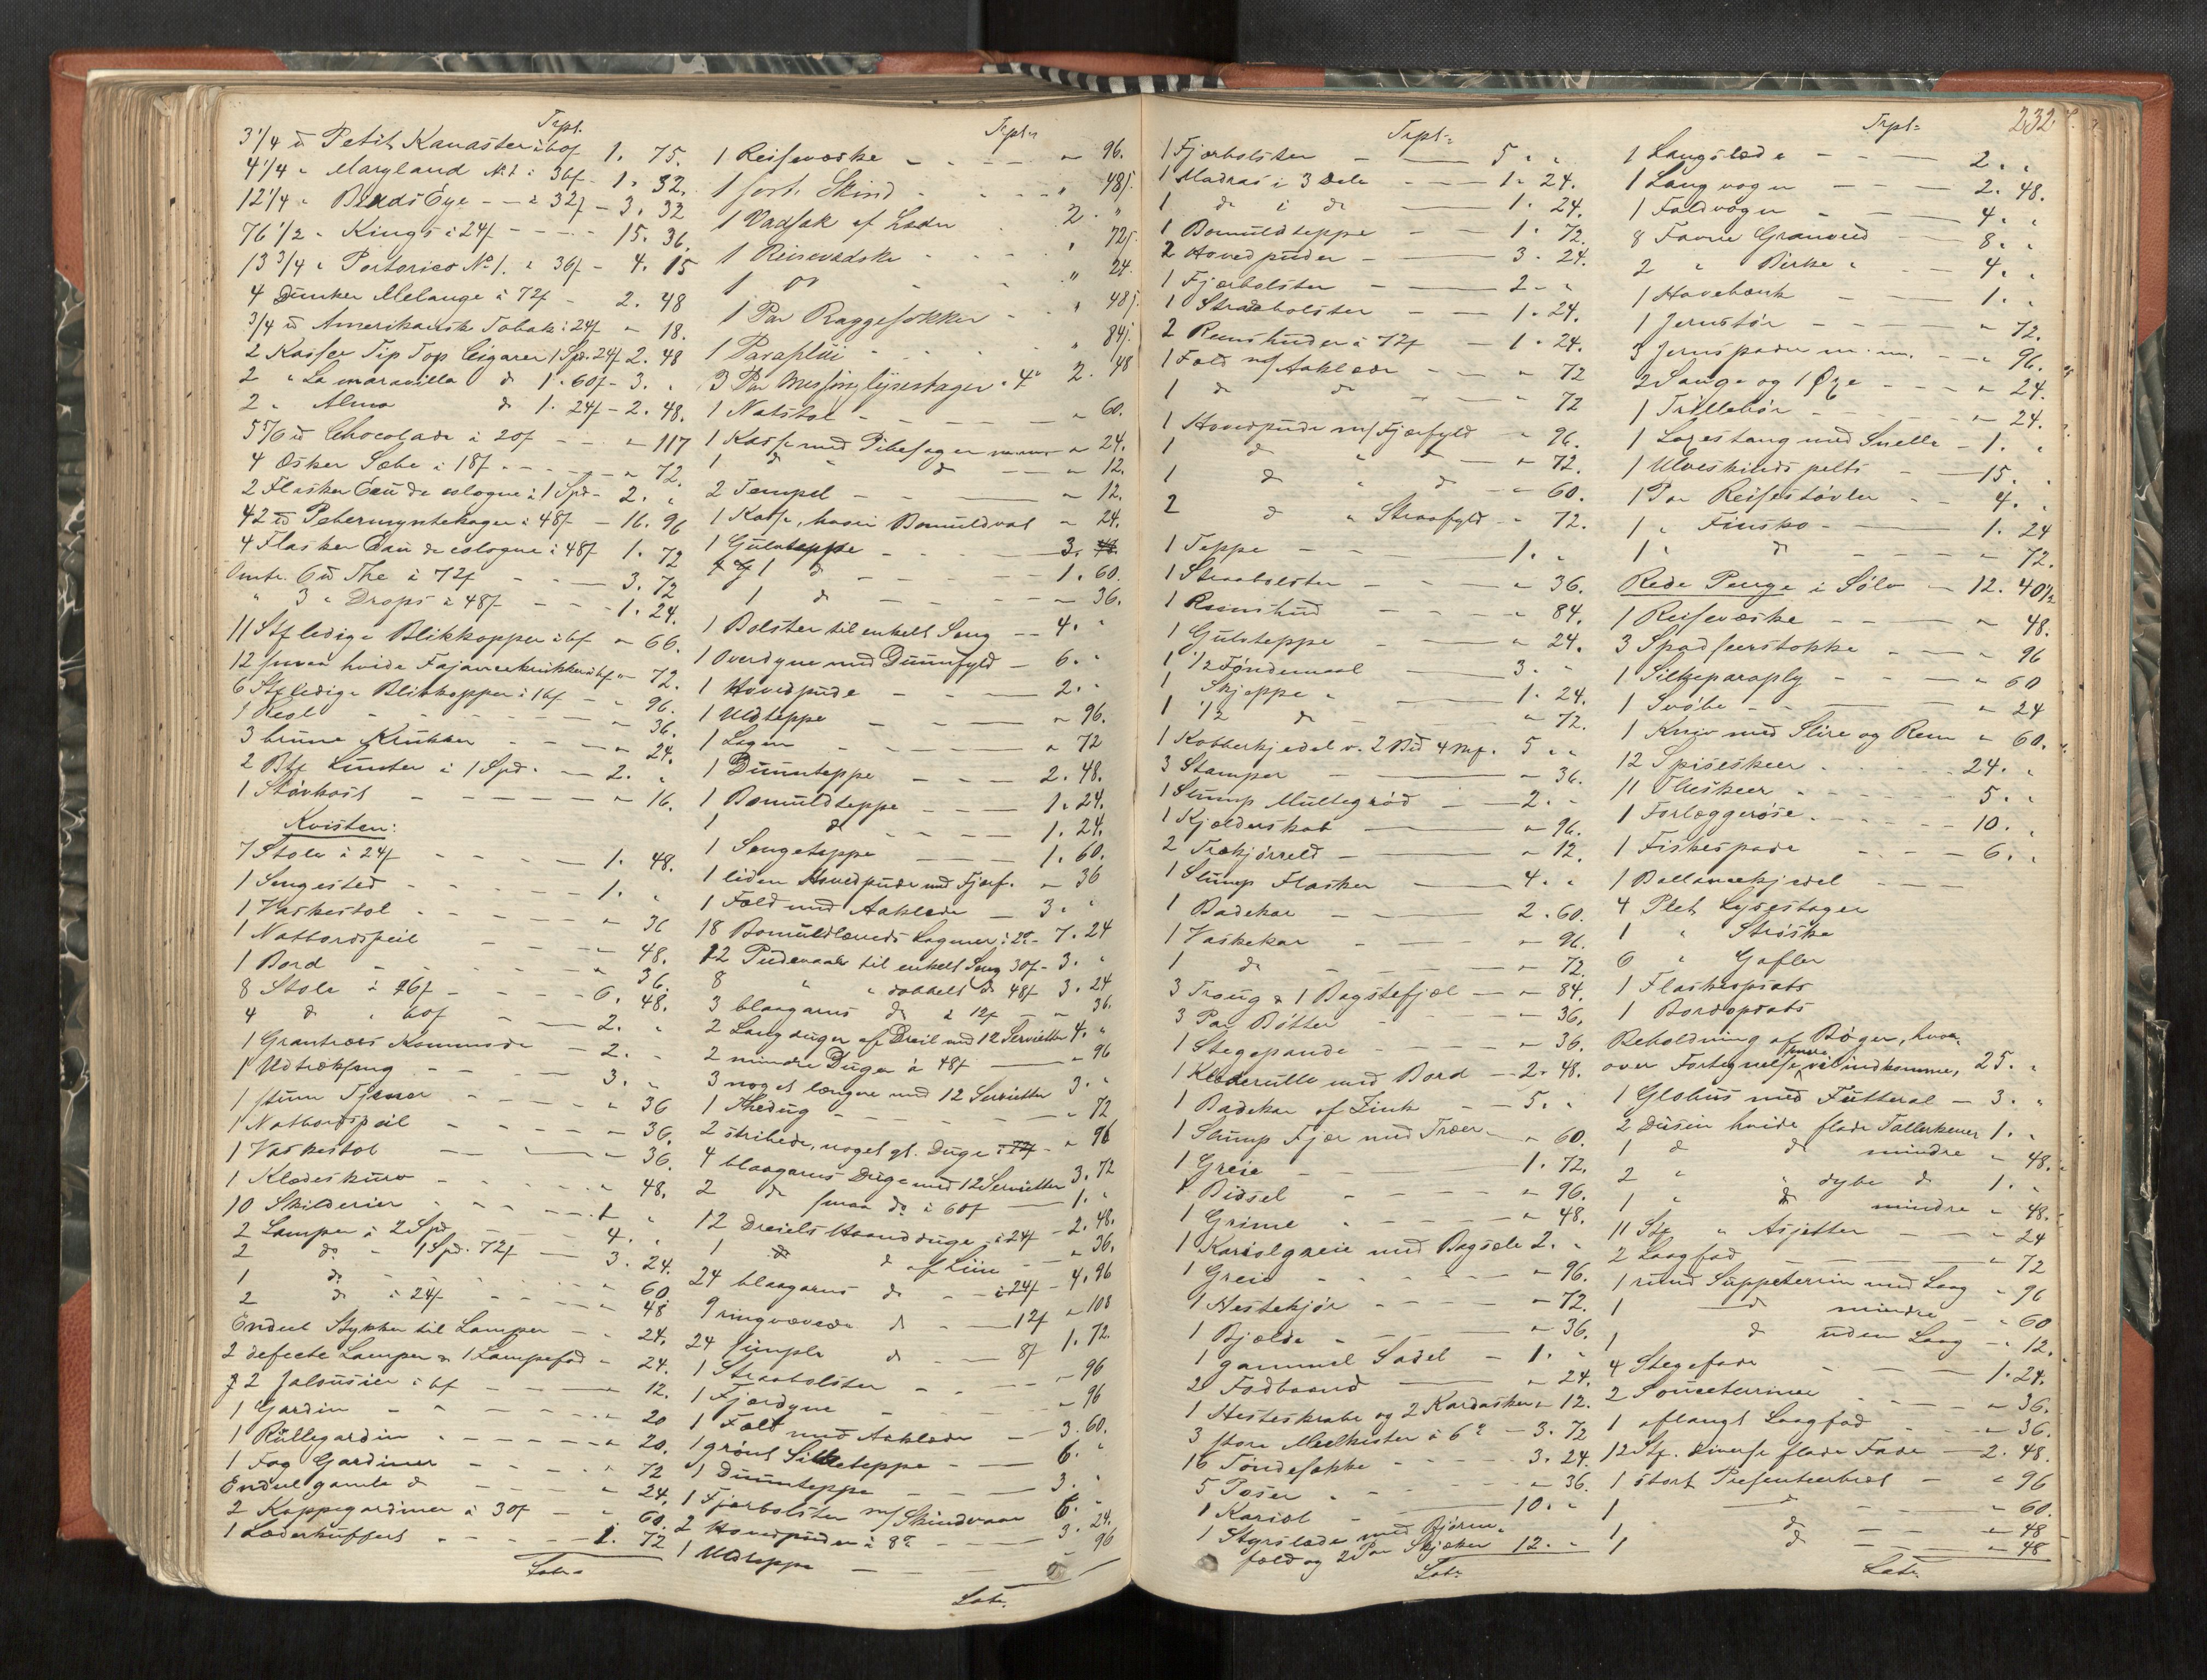 Trpt.
3 1/4 ℔ Petit Kanaster à 60ſ 1. 75.
4 1/4 " Maryland No 1 à 36ſ - 1. 32.
12 1/4 " Birds Eye - - à 32ſ - 3. 32
76 1/2 " Kings à 24ſ - - - 15. 36.
13 3/4 " Portorico No 1. à 36ſ - 4. 15
4 Dunker Melange à 72ſ - 2. 48
3/4 ℔ Amerikansk Tobak à 24ſ " 18.
2 Kasser Tip Top Cigarer 1 Spd. 24ſ 2. 48
2 " La maravilla d 1. 60ſ - 3. "
2 " Alma d 1. 24ſ - 2. 48.
5 5/6 ℔ Chocolade à 20ſ - - " 117
4 Æsker Sæbe à 18ſ - - - " 72.
2 Flasker Eau de cologne à 1 Spd - 2. "
42 ℔ Pebermyntekager à 48ſ - 16. 96
4 Flasker Eau de cologne à 48ſ 1. 72
Omtr. 6 ℔ The à 72ſ - - 3. 72
" 3 " Drops à 48ſ - - 1. 24.
11 Stk ledige Blikkopper à 6ſ " 66.
12 smaa hvide Fajancekrukker à 6ſ " 72.
6 Stk ledige Blikkopper à 16ſ - " 96.
1 Reol - - - - " 36.
3 brune Krukker - - - " 24.
2 Btl Lunter à 1 Spd. - 2. "
1 Støvkost - - - - " 16.
Kvisten:
7 Stole à 24ſ - - - - 1. 48.
1 Sengested - - - - 1. "
1 Vaskestol - - - - " 36
1 Natbordspeil - - - " 48.
1 Bord - - - - " 36.
8 Stole à 96ſ - - - 6. 48.
4 d " 60ſ - - - 2. "
1 Grantræes Kommode - 2. "
1 Udtrækseng - - - 3. "
1 stum Tjener - - - " 36
1 Natbordspeil - - - " 36.
1 Vaskestol - - - " 36.
1 Klædeskurv - - - " 48.
10 Skilderier - - - 1. "
2 Lamper à 2 Spd. - - 4. "
2 do " 1 Spd. 72ſ - 3. 24.
1 do - - - - " 60
2 d à 24ſ - - - " 48
Endeel Stykker til Lamper - " 24.
2 defecte Lamper & 1 Lampefod " 24.
2 Jalousier à 6ſ - - " 12.
1 Gardin - - - - " 20
1 Rullegardin - - - " 20.
1 Fag Gardiner - - - " 72
Endeel gamle d - - - " 24.
2 Kappegardiner à 30ſ - " 60.
1 Læderkuffert - - - 1. 72
Latr.
Trpt.
1 Reisevæske - - - " 96.
1 sort Skind - - - " 48ſ.
1 Vadsæk af Læder - 2. "
1 Reisevadske - - - " 72ſ.
1 do - - - " 24.
1 Par Raggesokker - - " 48ſ.
1 Paraplui - - - " 84ſ.
3 Par Messinglysestager 2. 48
1 Natstol - - - " 60.
1 Kasse med Pibesager m.m. " 24.
1 d " d - - " 12.
2 Tempel - - - " 12.
1 Kasse, hvori Bomuldvat " 24.
1 Gulvteppe - - - 3.
1 d - - - 1. 60.
1 d - - - " 36.
1 Bolster til enkelt Seng - - 4. "
1 Overdyne med Duunfyld - 6. "
1 Hovedpude - - - 2. "
1 Uldteppe - - - " 96.
1 Lagen - - - " 72
1 Duunteppe - - - 2. 48.
1 Bomuldteppe - - - 1. 24.
1 d - - - 1. 24.
1 Sengeteppe - - - 1. 60.
1 liden Hovedpude med Fjærf. " 36
1 Fæld med Aaklæde - 3. "
18 Bomuldlærreds Lagener - 7. 24
12 Pudevaar til enkelt Seng 30ſ - 3. "
8 " " dobbelt d 48ſ 3. 24
3 blaagarns d à 12ſ - " 36.
2 Langduger af Dreil med 12 Servietter 4. "
2 mindre Duger à 48ſ " 96
3 noget længere med 12 Servietter 3. "
1 Thedug - - - " 72
2 stribede, noget gl. Duge " 96
4 blaagarns Duge med 12 Servietter 3. 72
2 d smaa do à 60ſ - 1. "
12 Dreiels Haandduge à 24ſ - 2. 48.
1 d d af Liin - " 36.
24 blaagarns d - à 24ſ - 4. 96
9 ringvævede d - - 12ſ " 108
24 simple d - - 8ſ 1. 72.
1 Straabolster - - - " 96
1 Fjærdyne - - - " 96
1 Fæld med Aaklæde - 3. 60.
1 grønt Silketeppe - - 6. "
1 Duunteppe - - - 3. "
1 Fjærbolster m/ Skindvaar 6. "
2 Hovedpuder - - 3. 24.
1 Uldteppe - - - " 96
Latr.
Trpt.
1 Fjærbolster - - 5. "
1 Madras i 3 Dele - - 1. 24.
1 do i do - 1. 24.
1 Bomuldteppe - - 1. 72.
2 Hovedpuder - - 3. 24.
1 Fjærbolster - - 2. "
1 Straabolster - - 1. 24.
2 Reenshuder à 72ſ - 1. 24.
1 Fæld m/ Aaklæde - - " 72
1 d d - - " 72
1 Hovedpude m/ Fjærfyld " 96.
1 d " d - " 72.
1 d " d - " 60.
2 d " Straafyld - " 72.
1 Teppe - - - 1. "
1 Straabolster - - " 36.
1 Reenshud - - - " 84.
1 Gulvteppe - - " 24.
1 1/2 Tøndemaal - 3. "
1 Skjeppe " - 1. 24.
1 1/2 d - " 72.
1 Kobberkjedel v. 2 Bd 4 Mrk. 5. "
3 Stamper - - " 36.
1 Slump Multegrød - 2. "
1 Kjælderskab - - " 96.
2 Trækjørreld - - " 12.
1 Slump Flasker - 4. "
1 Badekar - - 2. 60.
1 Vaskekar - - " 96.
1 do - - " 72.
3 Troug & 1 Bagstefjæl - " 84.
3 Par Bøtter - - " 36,
1 Stegepande - - " 36.
1 Klæderulle med Bord - 2. 48.
1 Badekar af Zink - - 5. "
1 Slump Fjær med Træer " 60.
1 Greie - - - 1. 72.
1 Bidsel - - " 96.
1 Grime - - " 48.
1 Kariolgreie med Bagsele 2. "
1 Greie - - - " 96.
1 Hestekjør - - " 72.
1 Bjælde - - " 36.
1 gammel Sadel - 1. "
2 Fodbaand - - " 24.
1 Hesteskrabe og 2 Kardasker " 12.
3 store Meelkister - 3. 72
16 Tøndesække - - 3. 24.
5 Poser - - - " 36.
1 Kariol - - - 10. "
1 Styrslæde med Bjørne-
fæld og 2 Par Skjæker 12. "
Latr.
232.
Trpt.
1 Langslæde - - - 2. "
1 Langvogn - - 2. 48.
1 Foldvogn - - 4. "
8 Favne Granved - 8. "
2 " Birke " - 4. "
1 Havebænk - - 1. "
1 Jernstør - - " 72.
3 Jernspader m.m. - " 96.
2 Sauge og 1 Øxe - - " 24.
1 Trillebør - - " 24.
1 Laxestang med Snelle - 1. "
1 Ulveskinds pelts - 15. "
1 Par Reisestøvler - 4. "
1 " Finsko - - 1. 24
1 " d - - " 72.
Rede Penge i Sølv - 12. 40 1/2
1 Reisevæske - - " 48.
3 Spadseerstokke - - " 96
1 Silkeparaply - - " 60
1 Svøbe - - " 24
1 Kniv med Slire og Rem " 60.
12 Spiseskeer - - 24. "
11 Theskeer - - 5. "
1 Forlæggerøse - - 10. "
1 Fiskespade - - 6. "
1 Ballancekjedel - -
4 Plet Lysestager
1 " Strøske
6 " Gafler
1 Flaskeopsats
1 Bordopsats
Beholdning af Bøger, hvor-
over Fortegnelse vil indkomme, 25. "
1 Globus med Futteral - 3. "
2 Dusin hvide flade Tallerkener 1. "
1 d d mindre " 48.
2 " " dybe d 1. "
1 " d mindre " 48.
11 Stk " Asjetter - - " 24
2 Laagfad - - " 72
1 rund Suppeterrin med Laag " 96
1 d mindre - " 60
1 d uden Laag - " 12.
4 Stegefade - - 1. 24.
2 Souceterriner - - " 36.
1 aflangt Laagfad - " 36.
12 Stk. diverse flade Fade - 2. 48.
1 stort Presenteerbræt - " 96
1 d - - " 60.
1 d - - " 48
1 d - - " 48
Latr.